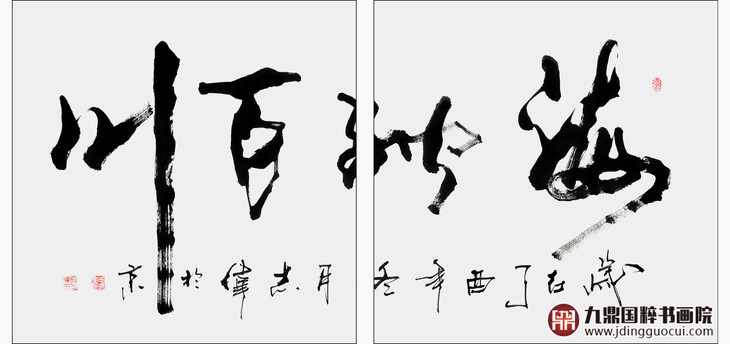 海纳百川
歲在丁酉年冬月志偉於京
九鼎国粹书画院
www.jdingguocui.com